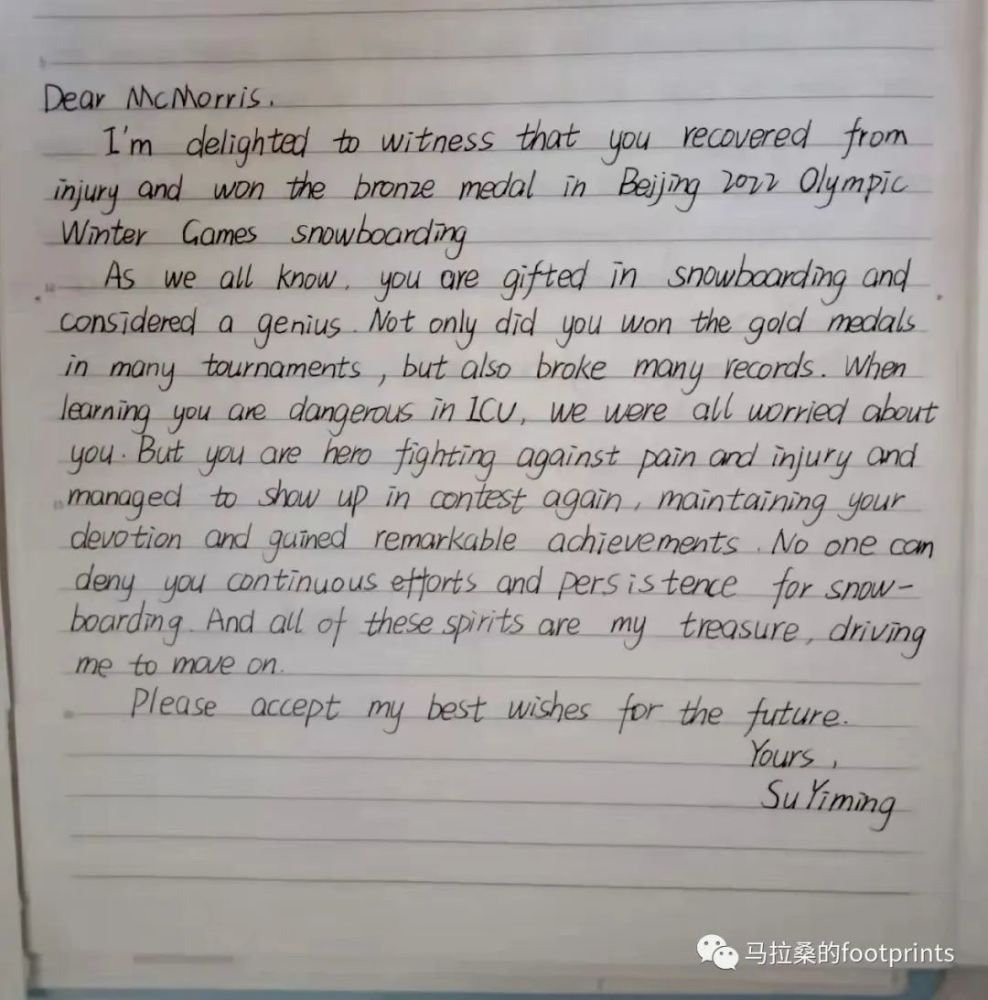 Dear McMorris,
I'm delighted to witness that you recovered from
injury and won the bronze medal in Beijing 2022 Olympic
Winter Games snowboarding
As we all know, you are gifted in snowboarding and
considered a genius. Not only did you won the gold medals
in many tournaments, but also broke many records. When
learning you are dangerous in ICU, we were all worried about
you. But you are hero fighting against pain and injury and
managed to show up in contest again, maintaining your
devotion and gained remarkable achievements. No one can
deny you continuous efforts and persistence for snow-
boarding. And all of these spirits are my treasure, driving
me to move on.
Please accept my best wishes for the future.
Yours,
Su Yiming
马拉桑的footprints